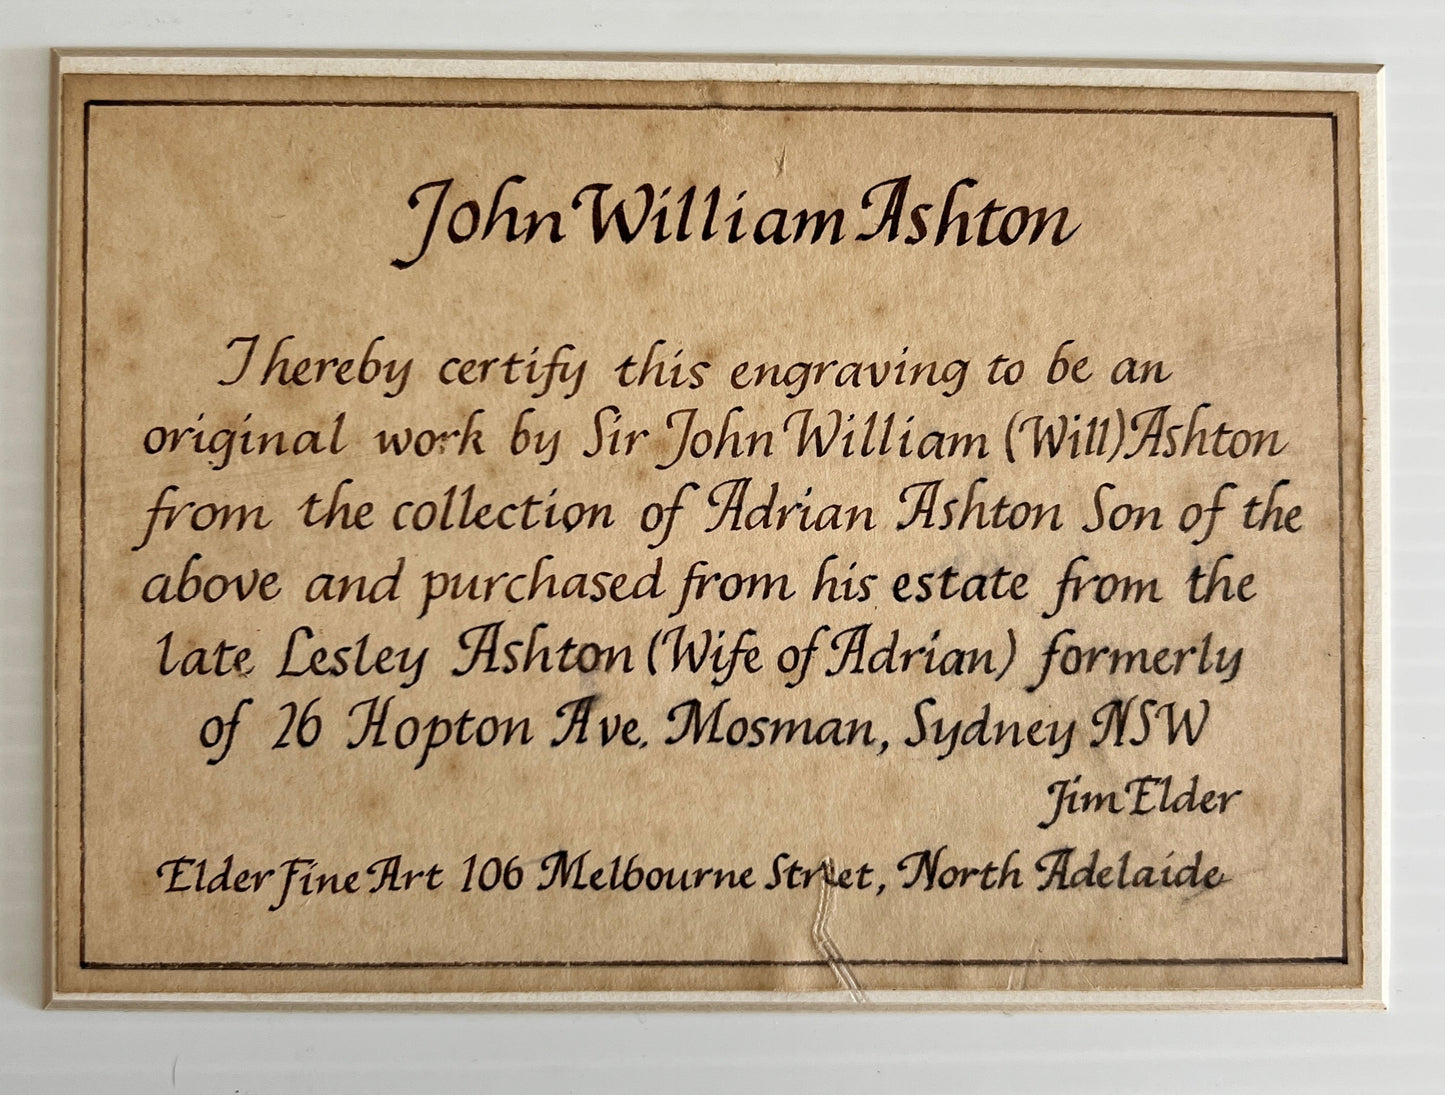 John William Ashton
I hereby certify this engraving to be an
original work by Sir John William (Will) Ashton
from the collection of Adrian Ashton Son of the
above and purchased from his estate from the
late Lesley Ashton (Wife of Adrian) formerly
of 26 Hopton Ave. Mosman, Sydney NSW
Jim Elder
Elder Fine Art 106 Melbourne Street, North Adelaide